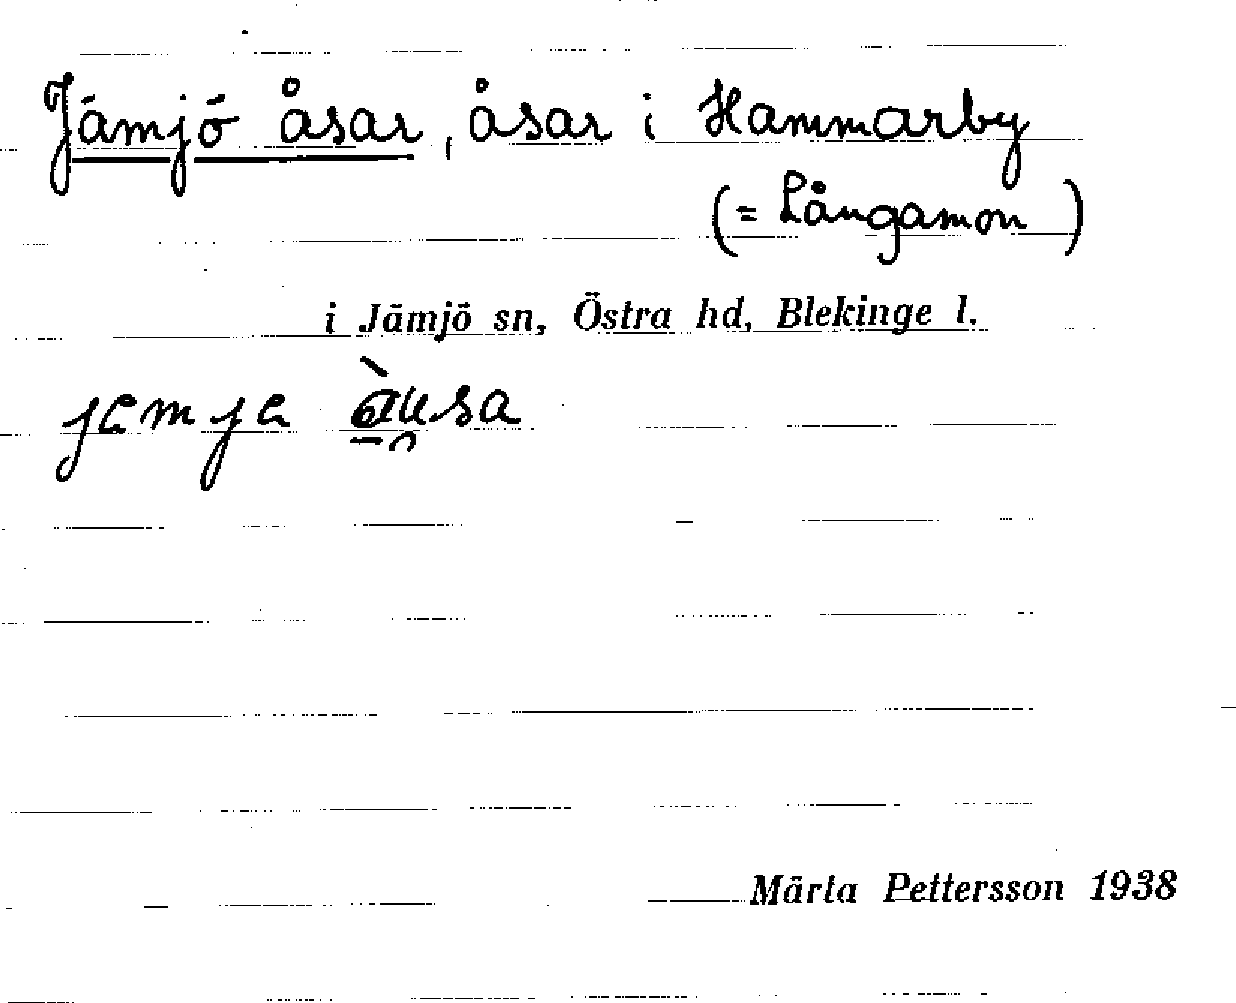 Jämjö åsar, åsar i Hammarby
(= Långamon)
i Jämjö sn, Östra hd, Blekinge l.
Märta Pettersson 1938